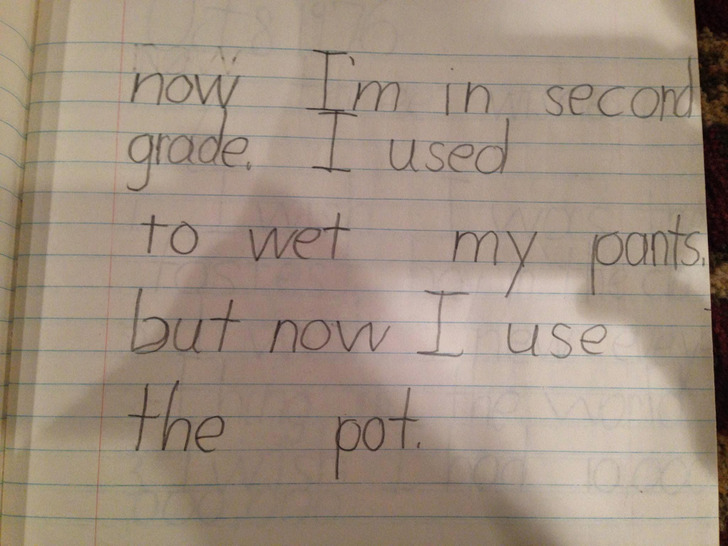 now I'm in second
grade. I used
to wet my pants.
but now I use
the pot.